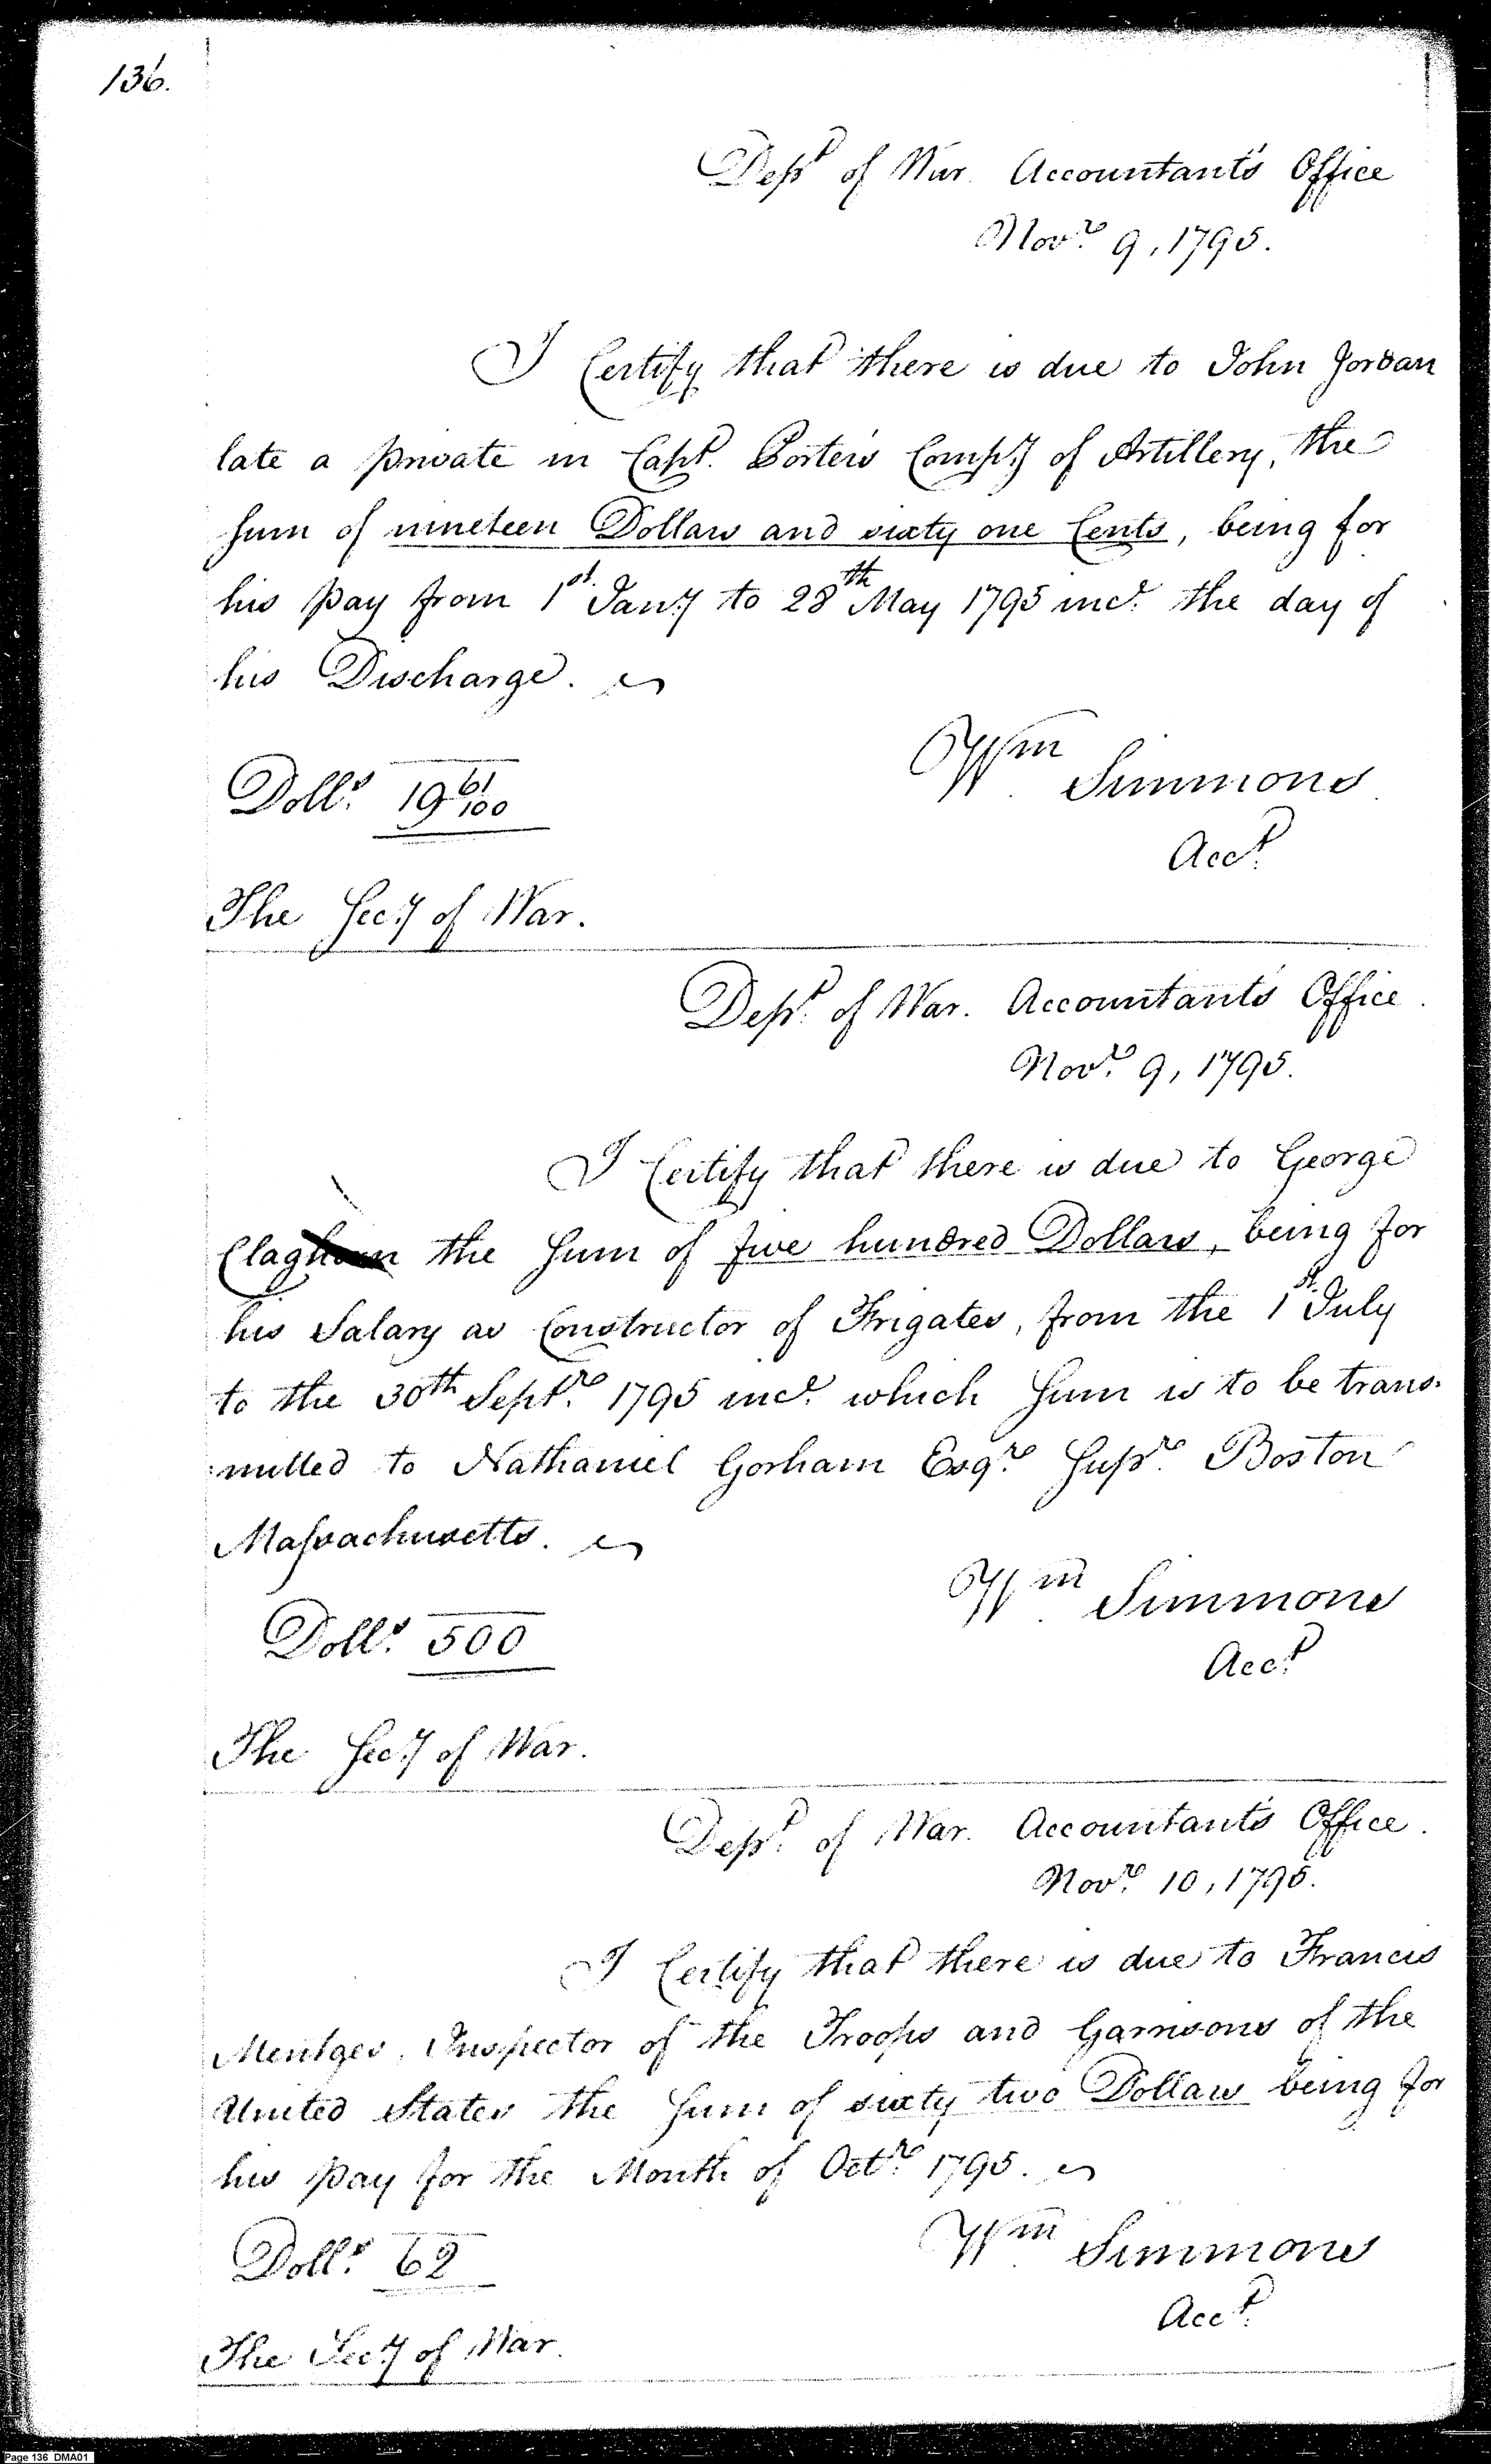 136.
Dept of War. Accountant's Office
Novr. 9, 1795.
I Certify that there is due to John Jordan
late a private in Capt. Porter's Compy. of Artillery, the
Sum of nineteen Dollars and sixty one Cents, being for
his pay from 1st. Jany. to 28th May 1795 incl. the day of
his Discharge.
Wm Simmons
Dolls. 19 61/100
Acct.
The Secy. of War.
Dept. of War. Accountant's Office.
Novr. 9, 1795.
I Certify that there is due to George
Claghorn the Sum of five hundred Dollars, being for
his Salary as Constructor of Frigates, from the 1st. July
to the 30th Septr. 1795 incl. which Sum is to be trans-
:mitted to Nathaniel Gorham Esqr. Supr. Boston
Massachusetts.
Wm Simmons
Dolls. 500
Acct.
The Secy. of War.
Dept. of War. Accountant's Office.
Novr. 10, 1795.
I Certify that there is due to Francis
Mentges, Inspector of the Troops and Garrisons of the
United States the Sum of sixty two Dollars being for
his pay for the Month of Octr. 1795.
Wm Simmons
Dolls. 62
Acct.
The Secy. of War.
Page 136 DMA01